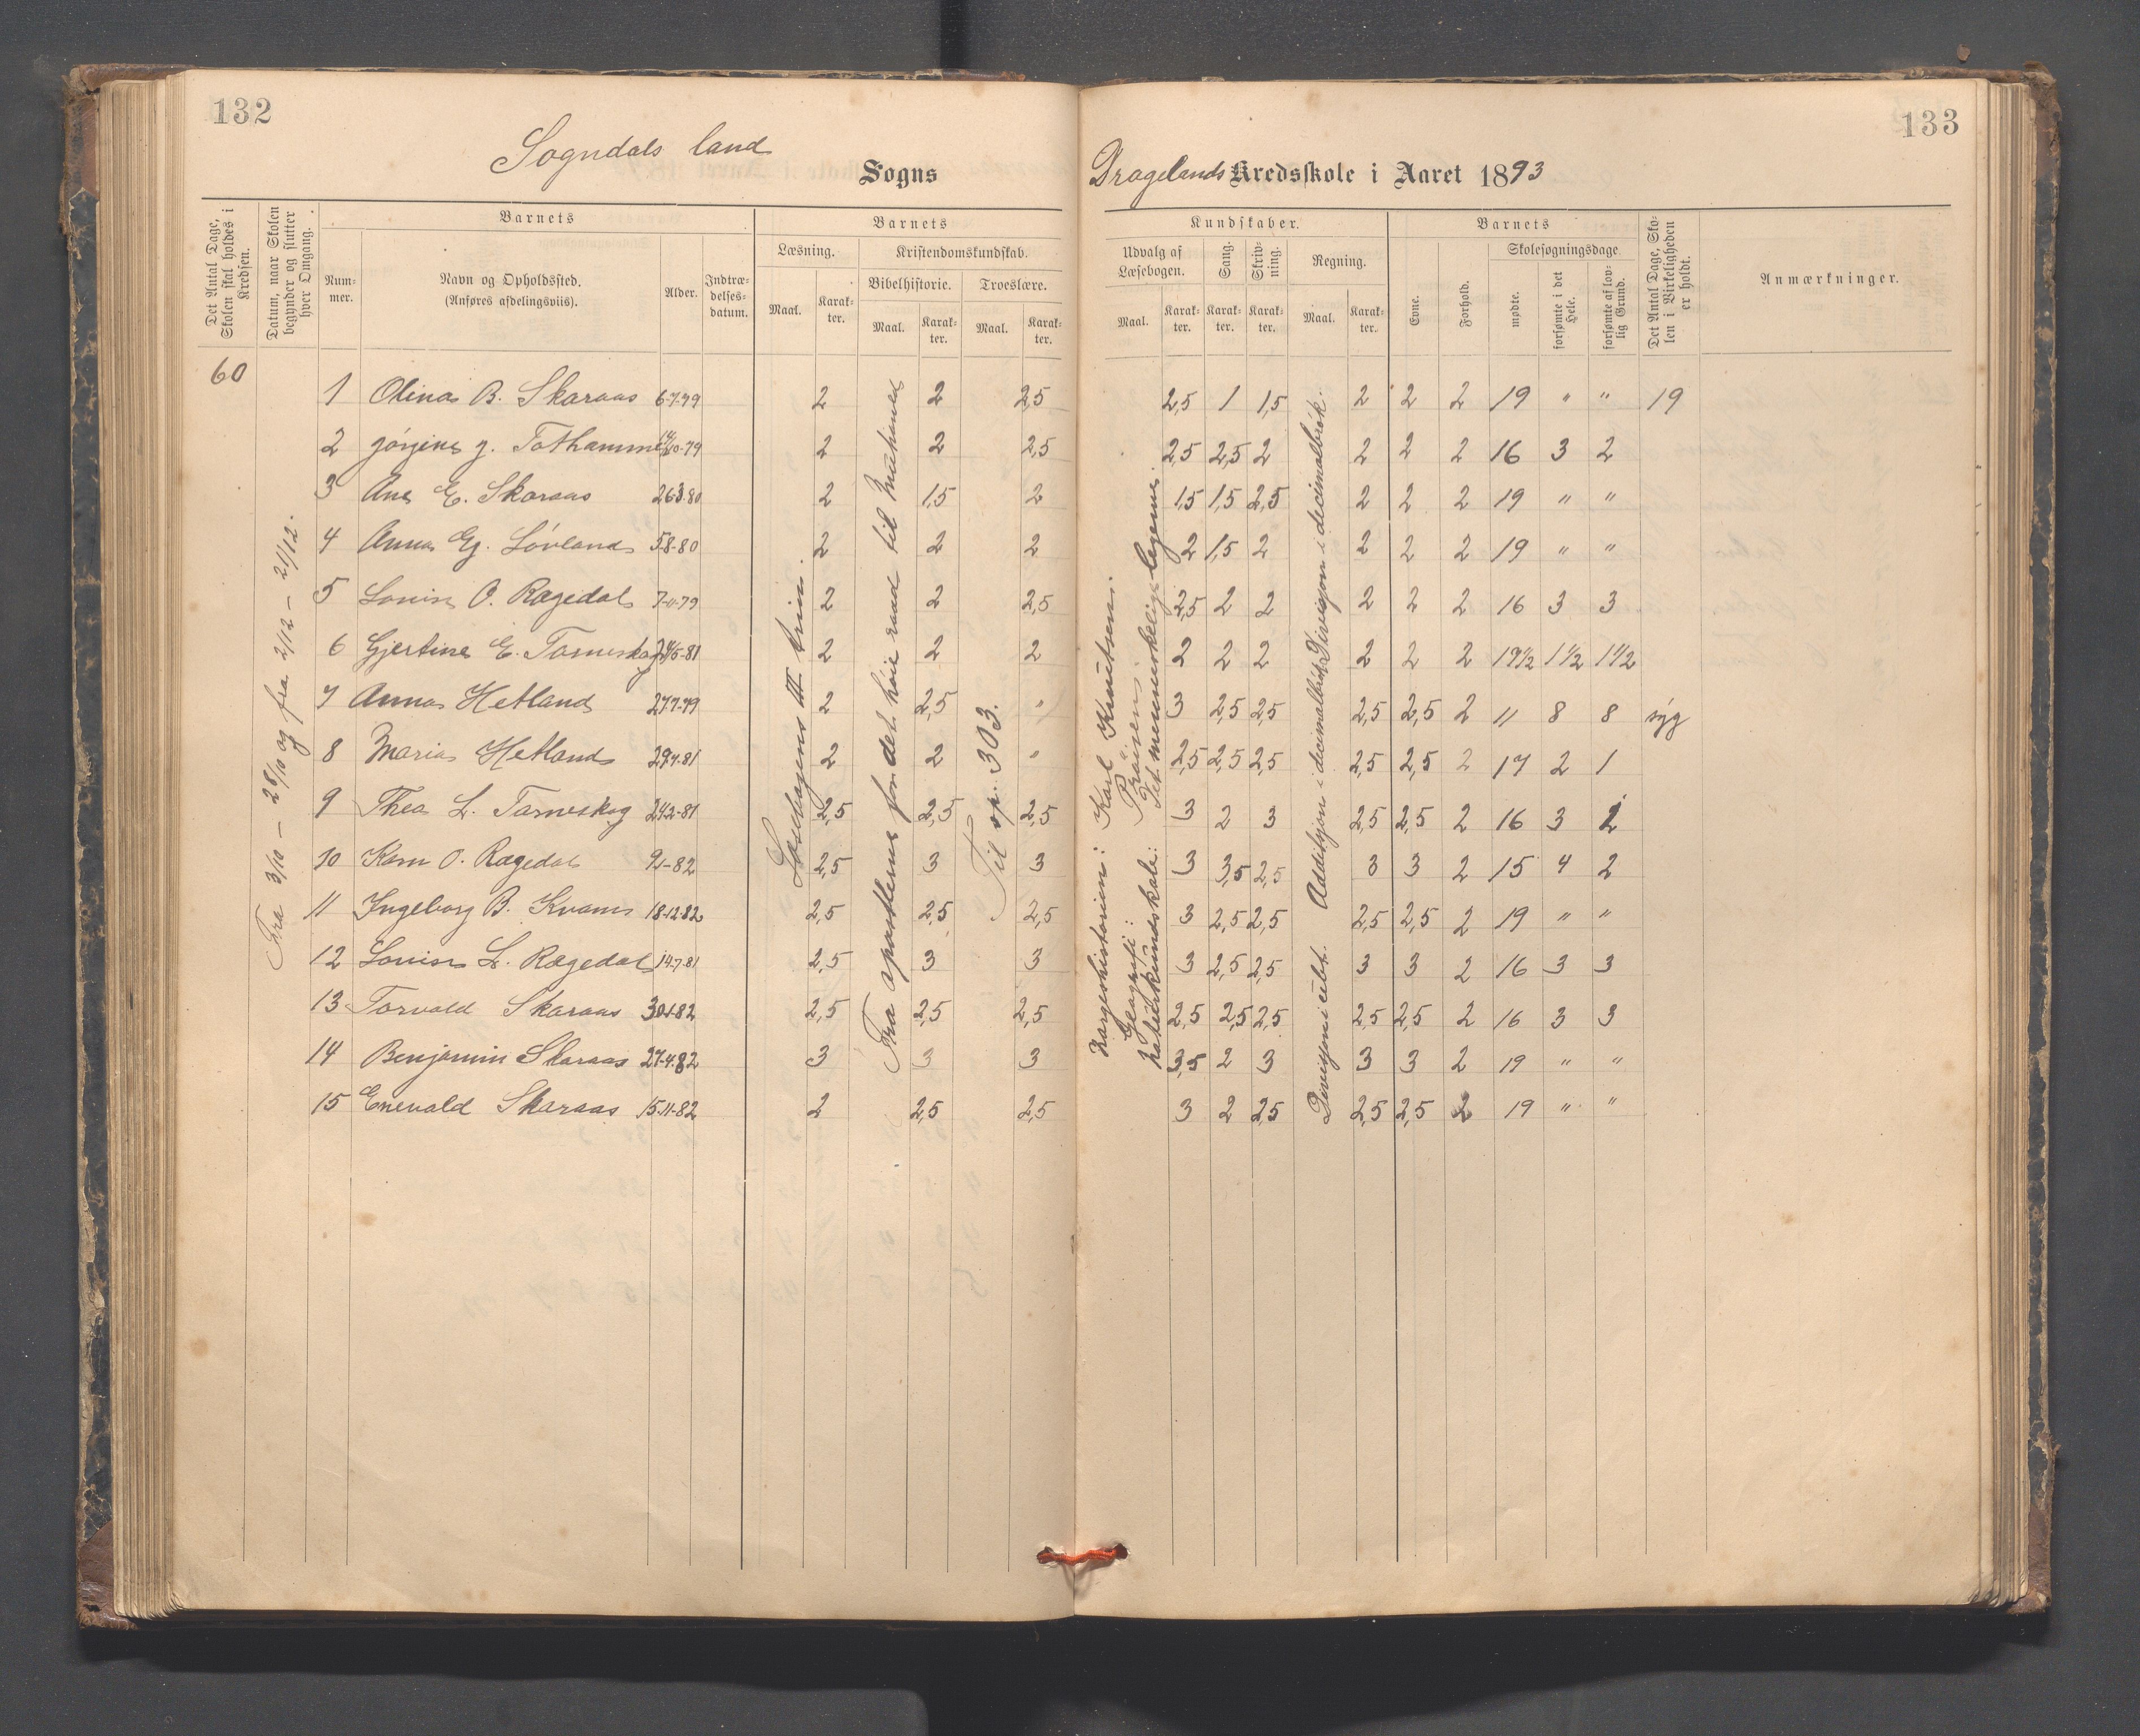 132
133
Sogndals land
Sogns
Dragelands Kredsskole i Aaret 1893
Det Antal Dage, Skolen skal holdes i Kredsen.
Datum, naar Skolen begynder og slutter hver Omgang.
Barnets
Nummer.
Navn og Opholdssted.
(Anføres afdelingsviis).
Alder.
Indtrædelsesdatum.
Barnets
Læsning.
Maal.
Karakter.
Kristendomskundskab.
Bibelhistorie.
Maal.
Karakter.
Troeslære.
Maal.
Karakter.
Kundskaber.
Udvalg af Læsebogen.
Maal.
Karakter.
Sang.
Karakter.
Skrivning.
Karakter.
Regning.
Maal.
Karakter.
Barnets
Evne.
Forhold.
Skolesøgningsdage.
mødte.
forsømte i det Hele.
forsømte af lovlig Grund.
Det Antal Dage, Skolen i Virkeligheden er holdt.
Anmærkninger.
60
Fra 3/10 - 28/10 og fra 2/12 - 21/12.
Læsebogens III trin.
Fra apostlenes for det høie raad til
Til sp. 303.
Norgeshistorien: Karl Knutsen.
Geografi: Präisen.
Naturkundskab: Det menneskelige legeme.
Divisjon i ubt. Addisjon i decimalbrøk. Divisjon i decimalbrøk.
1 Olina B. Skaraas 6-7-79 2 2 2,5 2,5 1 1,5 2 2 2 19 " " 19
2 Jørgine J. 10-79 2 2 2,5 2,5 2,5 2 2 2 2 16 3 2
3 Ane E. Skaraas 26-3-80 2 1,5 2 1,5 1,5 2,5 2 2 2 19 " "
4 Anna Eg. Løvland 5-8-80 2 2 2 2 1,5 2 2 2 2 19 " "
5 Louise O. Rægedal 7-11-79 2 2 2,5 2,5 2 2 2 2 2 16 3 3
6 Gjertine E. Tarneskog 5-81 2 2 2 2 2 2 2 2 2 17 1/2 1 1/2 1 1/2
7 Anna Hetland 27-7-79 2 2,5 " 3 2,5 2,5 2,5 2,5 2 11 8 8 syg
8 Maria Hetland 29-7-81 2 2 " 2,5 2,5 2,5 2,5 2,5 2 17 2 1
9 Thea L. Tarneskog 24-2-81 2,5 2,5 2,5 3 2 3 2,5 2,5 2 16 3 2
10 Karn O. Rægedal 9-1-82 2,5 3 3 3 3,5 2,5 3 3 2 15 4 2
11 Ingeborg B. Kvam 18-12-82 2,5 2,5 2,5 3 2,5 2,5 2,5 2,5 2 19 " "
12 Louise L. Rægedal 14-7-81 2,5 3 3 3 2,5 2,5 3 3 2 16 3 3
13 Torvald Skaraas 30-1-82 2,5 2,5 2,5 2,5 2,5 2,5 2,5 2,5 2 16 3 3
14 Benjamin Skaraas 27-4-82 3 3 3 3,5 2 3 3 3 2 19 " "
15 Enevald Skaraas 15-11-82 2 2,5 2,5 3 2 2,5 2,5 2,5 2 19 " "